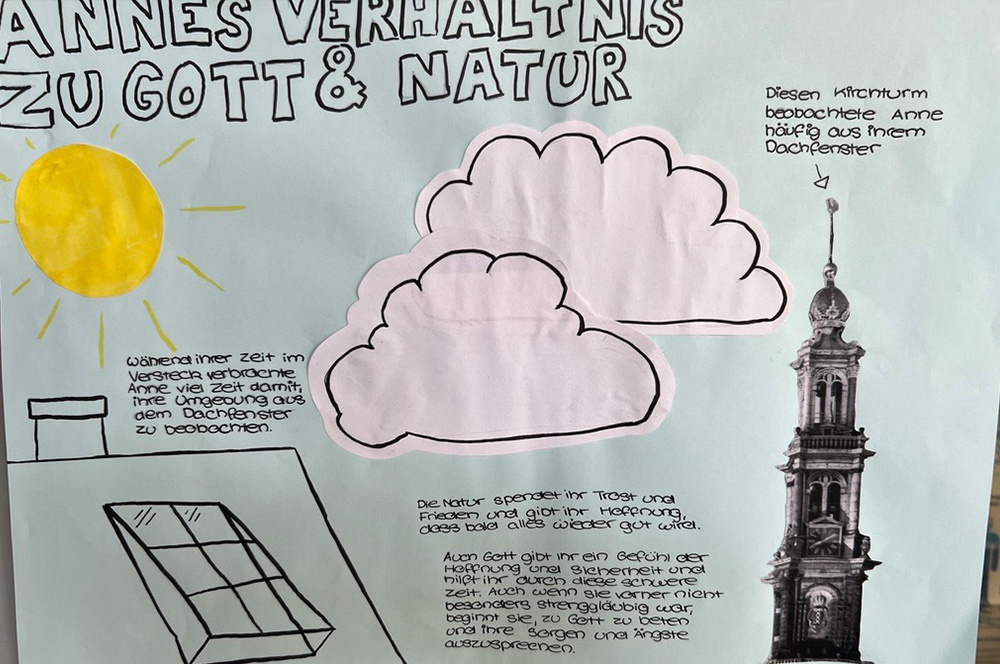 ANNES VERHÄLTNIS
ZU GOTT & NATUR
Diesen Kirchturm
beobachtete Anne
häufig aus ihrem
Dachfenster
Während ihrer Zeit im
Versteck verbrachte
Anne viel Zeit damit,
ihre Umgebung aus
dem Dachfenster
zu beobachten.
Die Natur spendet ihr Trost und
Frieden und gibt ihr Hoffnung,
dass bald alles wieder gut wird.
Auch Gott gibt ihr ein Gefühl der
Hoffnung und Sicherheit und
hilft ihr durch diese schwere
Zeit. Auch wenn sie vorher nicht
besonders strenggläubig war,
beginnt sie, zu Gott zu beten
und ihre Sorgen und Ängste
auszusprechen.